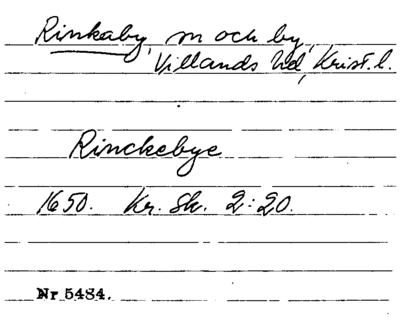 Rinkaby, sn och by,
Villands hd, Krist. l.
Rinckebye
1650. Kr. Sk. 2:20.
Nr 5484.